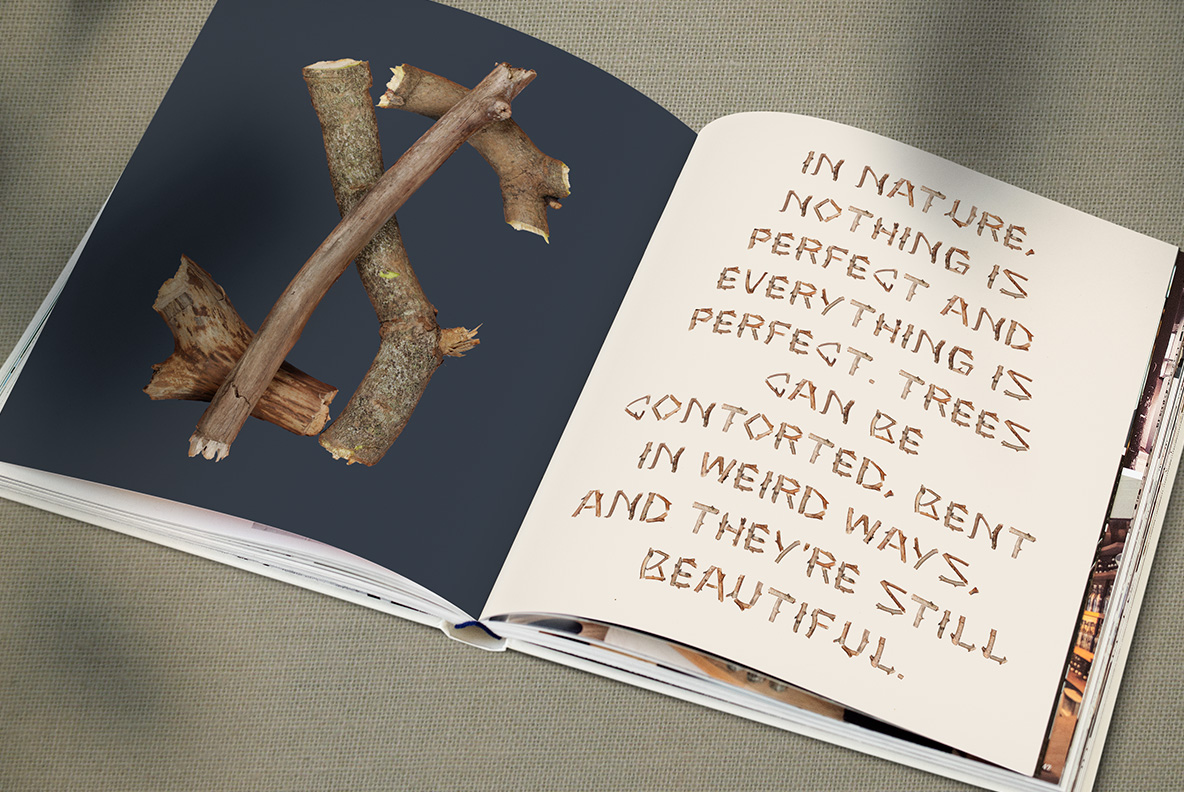 IN NATURE,
NOTHING IS
PERFECT AND
EVERYTHING IS
PERFECT. TREES
CAN BE
CONTORTED, BENT
IN WEIRD WAYS,
AND THEY'RE STILL
BEAUTIFUL.